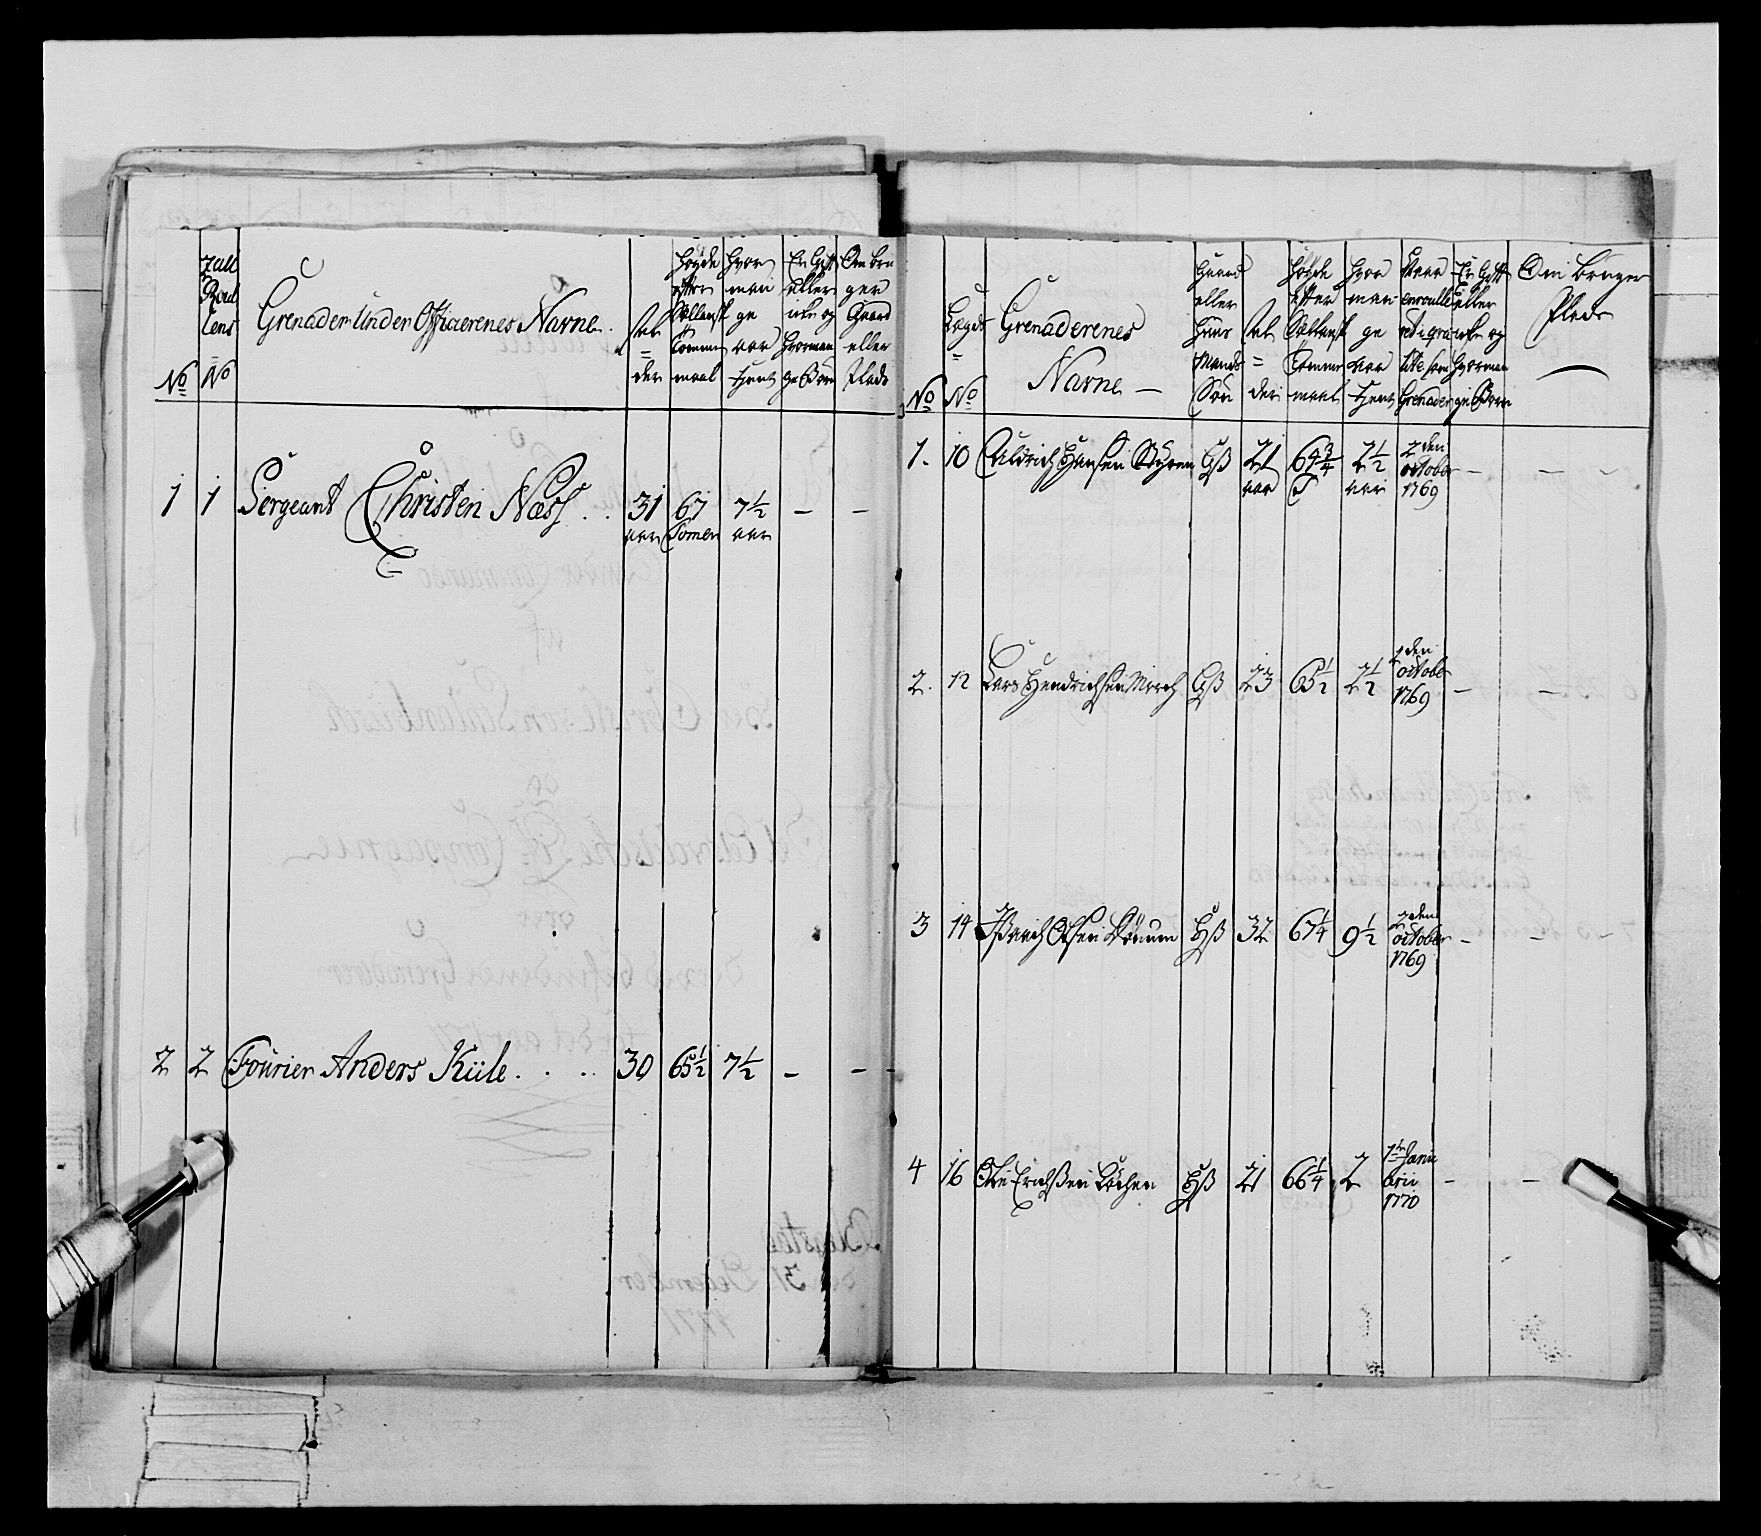 No
Tall Roul lens No
Grenader Under Officierenes Navne
Al=der
Høyde efter Sællansk Tomme maal
Hvor mange aar tient
Er Gift eller icke og hvor mange Børn
Om bruger Gaard eller Plads
1 1 Sergeant Christen Næss .. 31 aar 67 Tomer 7½ aar – –
2 2 Fourier Anders Kiile .... 30 65½ 7½ – –
No
Lægds No
Grenaderenes Navne –
Gaard eller Huus Mands Søn
Al=der
Høyde efter Sællansk Tomme maal
Hvor mange aar tient
Er Gift eller icke og hvor mange Børn
Om Bruger Plads
1. 10 Hansen Gß 21 aar 64¾ T 2½ aar 2den october 1769 – – –
2. 12 Lars Hendrichsen Gß 23 65½ 2½ 2den october 1769 – –
3 14 Olsen Hß 32 67¼ 9½ 2den october 1769 – –
4 16 Ole Erichßen Hß 21 66¼ 2 1ste Januarii 1770 – –